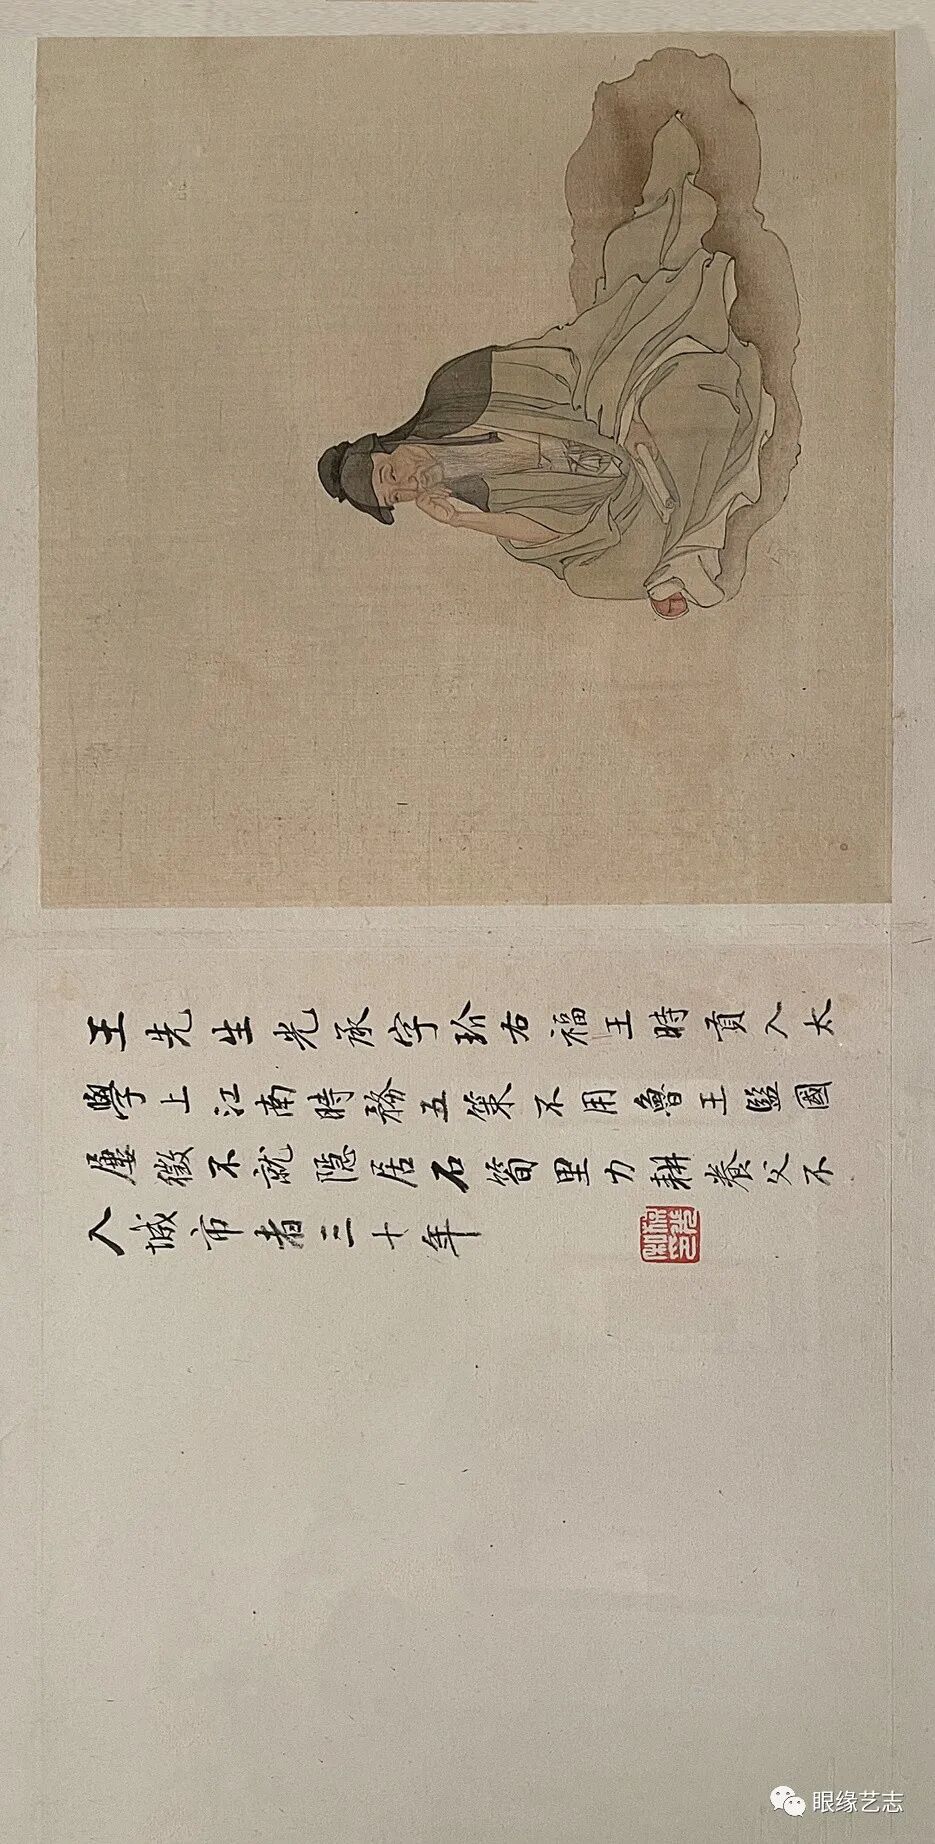 王先生光承字玠右福王時貢入太
學上江南時務五策不用魯王監國
屢徵不就隱居石筍里力耕養父不
入城市者三十年
眼缘艺志